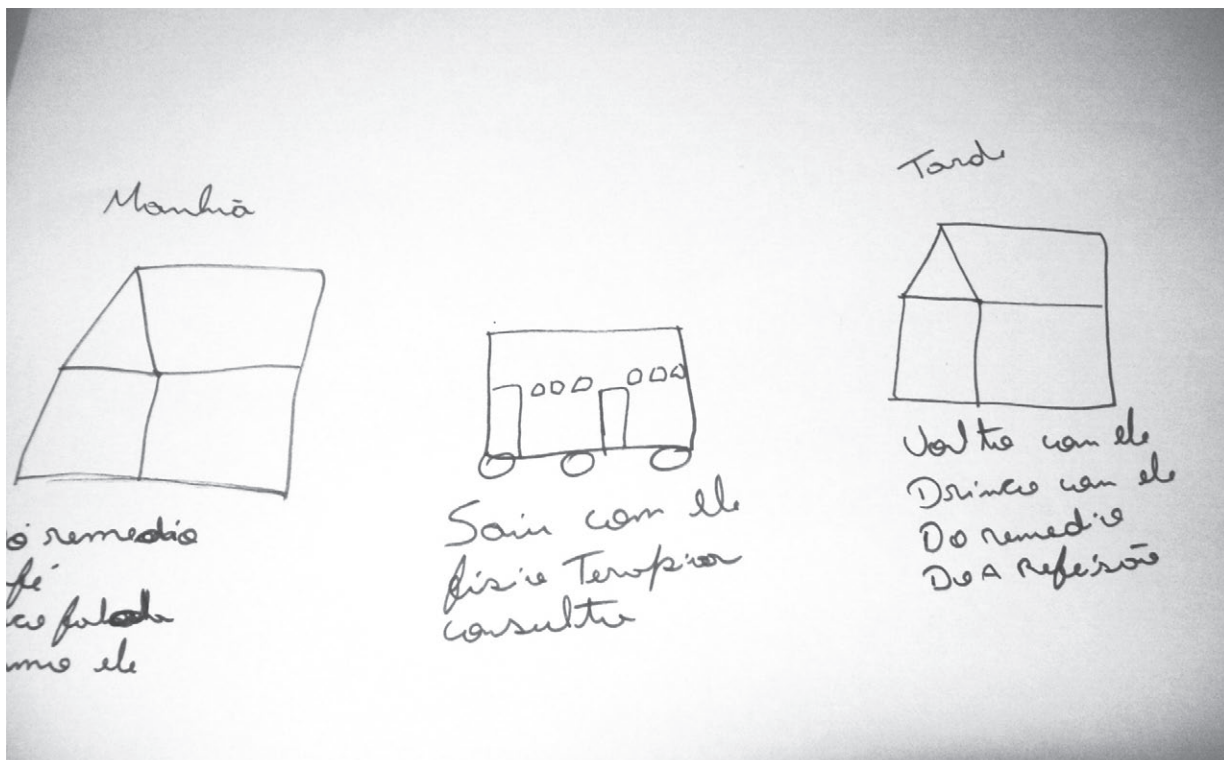 Manhã
ó remedio
fé
ele
Sair com ele
fisio Terapia
consulta
Tarde
Volto com ele
Brinco com ele
Do remedio
Do A Refeisão